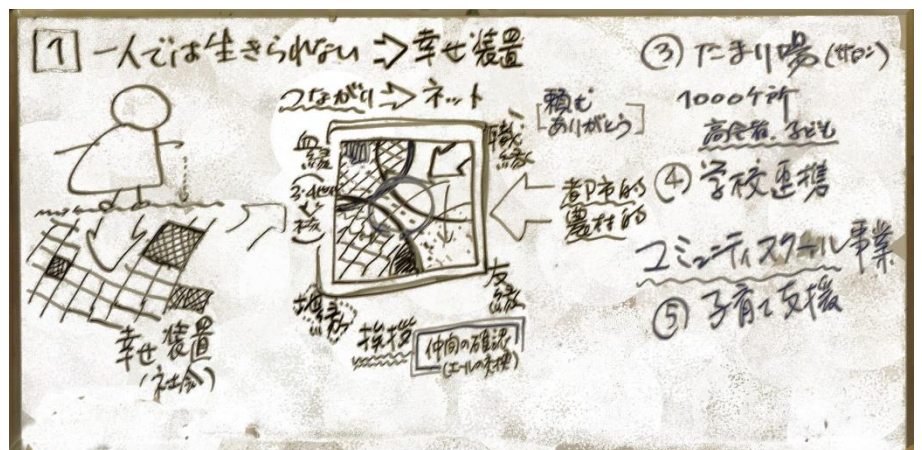 1 一人では生きられない ⇒ 幸せ装置
つながり ⇒ ネット
血縁
(3・4世
核)
職縁
地縁
友縁
[頼む
ありがとう]
都市的
農村的
挨拶
仲間の確認
(エールの交換)
幸せ装置
(社会)
③ たまり場(サロン)
1000ヶ所
高令者、子ども
④ 学校連携
コミュニティスクール事業
⑤ 子育て支援